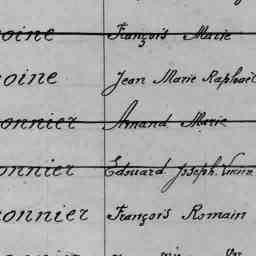 oine François Marie
oine Jean Marie Raphaël
onnier Amand Marie
onnier Edouard Joseph
onnier François Romain